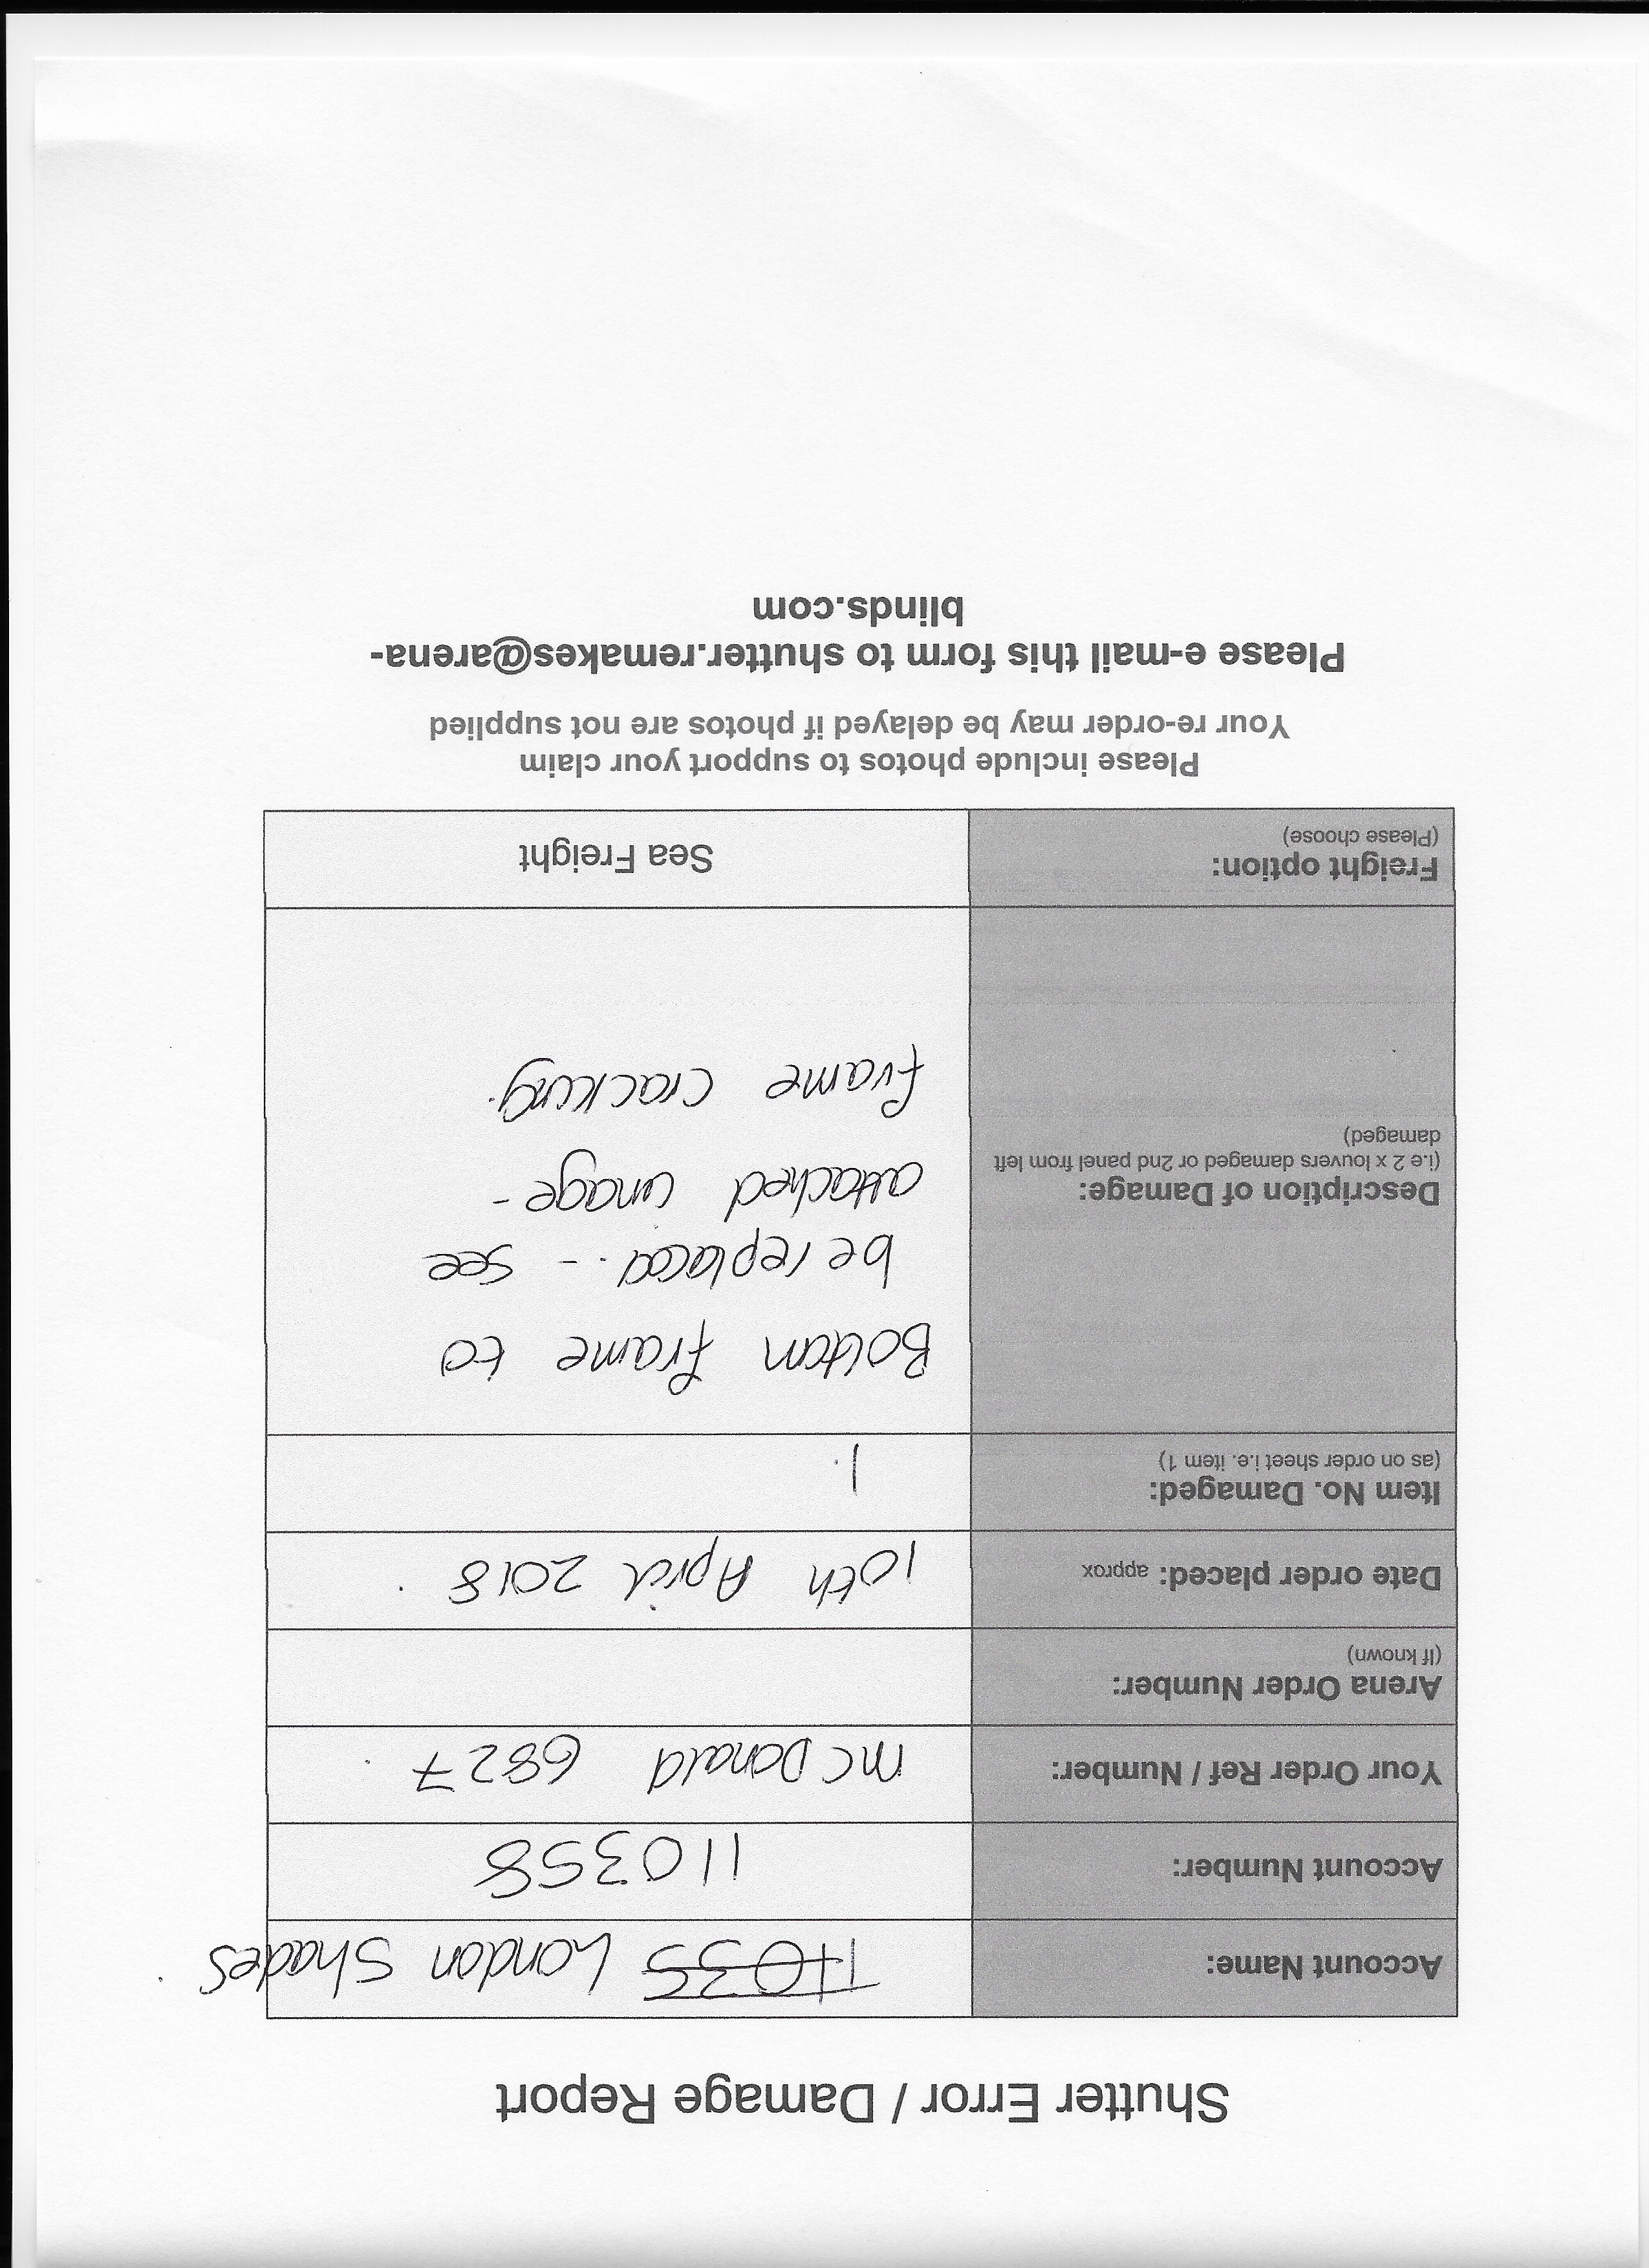 Shutter Error / Damage Report
Account Name: 11035 London Shades
Account Number: 110358
Your Order Ref / Number: McDonald 6827
Arena Order Number:
(If known)
Date order placed: approx 10th April 2018
Item No. Damaged: 1
(as on order sheet i.e. item 1)
Description of Damage:
(i.e 2 x louvers damaged or 2nd panel from left
damaged)
Bottom frame to
be replaced - see
attached image -
frame cracking.
Freight option: Sea Freight
(Please choose)
Please include photos to support your claim
Your re-order may be delayed if photos are not supplied
Please e-mail this form to shutter.remakes@arena-
blinds.com